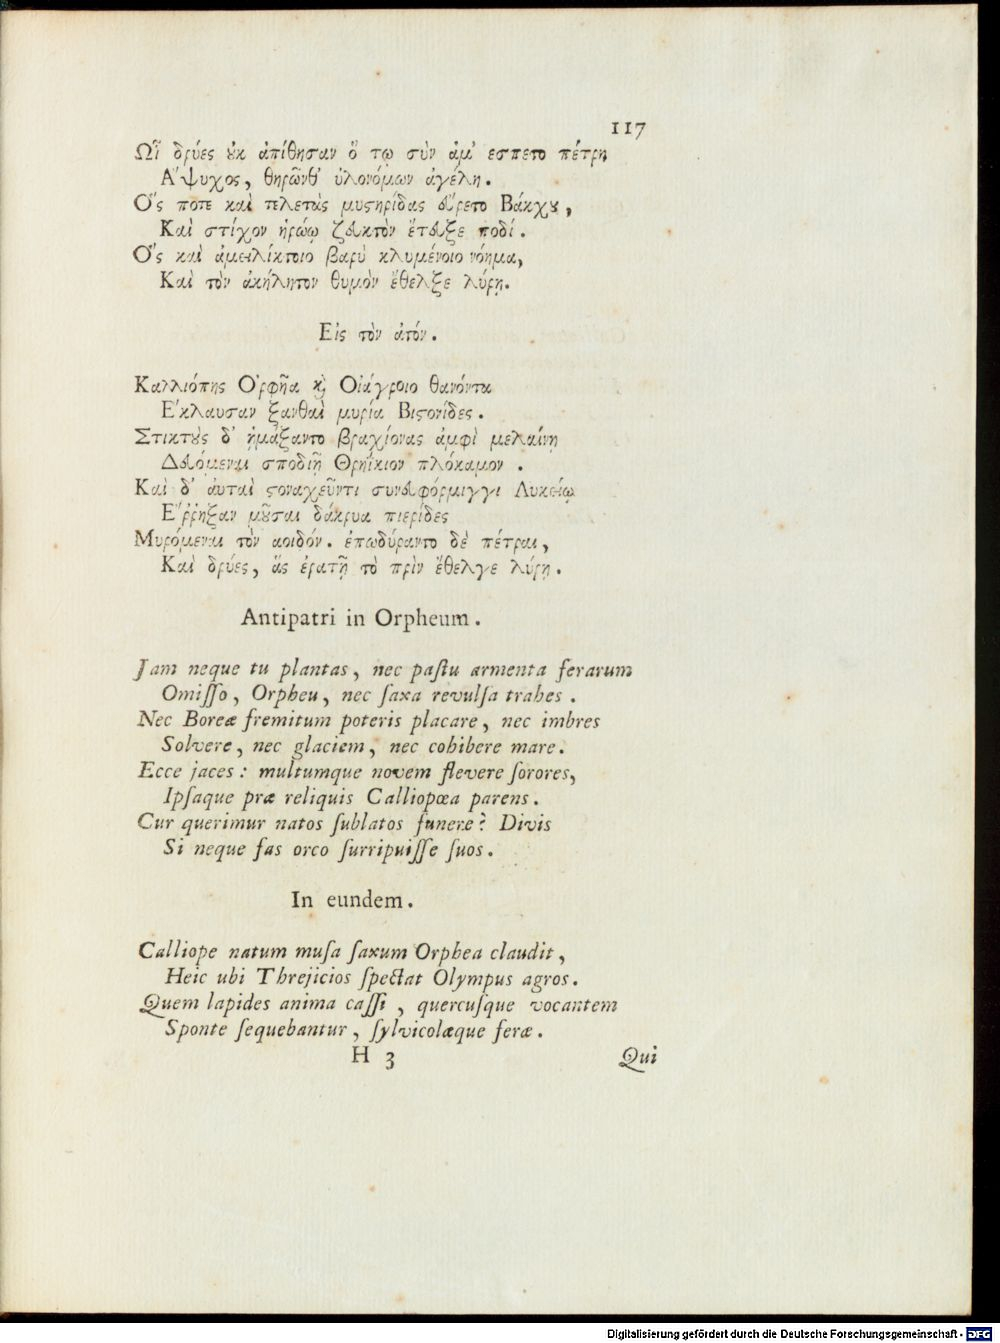 117
Ωἷ δρύες ȣκ ἀπίθησαν ὅ τῳ σὺν ἁμ' εσπετο πέτρη
Α'ψυχος, θηρῶνθ' ὑλονόμων ἀγέλη.
Ο῞ς ποτε καὶ τελετὰς μυςηρίδας εὕρετο Βάκχȣ,
Καὶ στίχον ἡρώῳ ζευκτὸν ἔτευξε ποδί.
Ο῞ς καὶ ἀμειλίκτοιο βαρὺ κλυμένοιο νόημα,
Καὶ τὸν ἀκήλητον θυμὸν ἔθελξε λύρῃ.
Εἰς τὸν ἀτόν.
Καλλιόπης Ο'ρφῆα ϗ Οἰάγροιο θανόντα
Ε῎κλαυσαν ξανθαὶ μυρία Βιςονίδες.
Στικτȣ̀ς δ' ἡμάξαντο βραχίονας ἀμφὶ μελαίνῃ
Δευόμεναι σποδιῇ Θρηΐκιον πλόκαμον.
Καὶ δ' ἀυταὶ ςοναχεῦντι συνευφόρμιγγι Λυκείῳ
Ε῎ῤῥηξαν μȣ͂σαι δάκρυα πιερίδες
Μυρόμεναι τὸν αοιδόν. ἐπωδύραντο δὲ πέτραι,
Καὶ δρύες, ἃς ἐρατῇ τὸ πρὶν ἔθελγε λύρῃ.
Antipatri in Orpheum.
Jam neque tu plantas, nec paſtu armenta ferarum
Omiſſo, Orpheu, nec ſaxa revulſa trahes.
Nec Boreæ fremitum poteris placare, nec imbres
Solvere, nec glaciem, nec cohibere mare.
Ecce jaces: multumque novem flevere ſorores,
Ipſaque præ reliquis Calliopœa parens.
Cur querimur natos ſublatos funere? Divis
Si neque fas orco ſurripuiſſe ſuos.
In eundem.
Calliope natum muſa ſaxum Orphea claudit,
Heic ubi Threjicios ſpectat Olympus agros.
Quem lapides anima caſſi, quercuſque vocantem
Sponte ſequebantur, ſylvicolæque feræ.
H 3 Qui
Digitalisierung gefördert durch die Deutsche Forschungsgemeinschaft - DFG